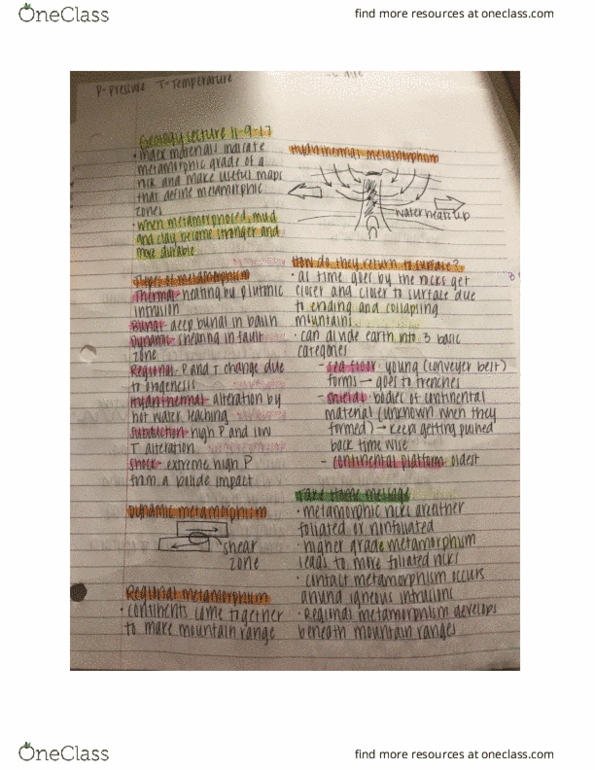 OneClass
find more resources at oneclass.com
P-Pressure T-Temperature
Geology Lecture 11-9-17
• index materials indicate
metamorphic grade of a
rock and make useful maps
that define metamorphic
zones
• when metamorphosed, mud
and clay become stronger and
more durable
Types of metamorphism
Thermal- heating by plutonic
intrusion
Burial- deep burial in basin
Dynamic- shearing in fault
zone
Regional- P and T change due
to orogenesis
Hydrothermal- alteration by
hot water leaching
Subduction- high P and low
T alteration
Shock- extreme high P
from a bolide impact
Dynamic metamorphism
shear
zone
Regional metamorphism
• continents come together
to make mountain range
Hydrothermal metamorphism
water heats up
How do they return to surface?
• as time goes by the rocks get
closer and closer to surface due
to eroding and collapsing
mountains
• can divide earth into 3 basic
categories
- sea floor: young (conveyer belt)
forms → goes to trenches
- shield: bodies of continental
material (unknown when they
formed) → keep getting pushed
back time wise
- continental platform: oldest
Take Home message
• metamorphic rocks are either
foliated or nonfoliated
• higher grade metamorphism
leads to more foliated rocks
• contact metamorphism occurs
around igneous intrusions
• Regional metamorphism develops
beneath mountain ranges
OneClass
find more resources at oneclass.com